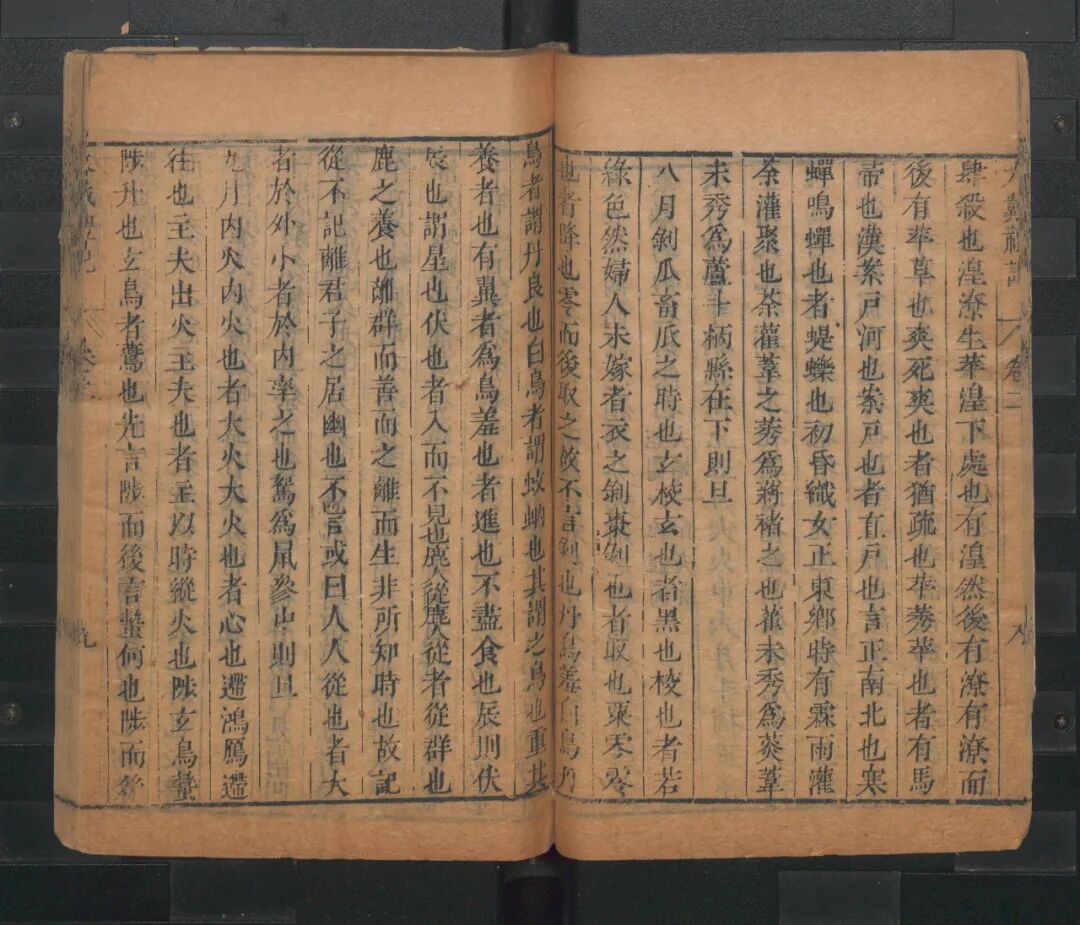 大戴禮記 卷二 八
肆殺也湟潦生苹湟下處也有湟然後有潦有潦而
後有苹草也爽死爽也者猶疏也苹莠苹也者有馬
帚也漢案戶河也案戶也者直戶也言正南北也寒
蟬鳴蟬也者蝭蠑也初昏織女正東鄉時有霖雨灌
荼灌聚也荼雚葦之莠為蔣褚之也雚未秀為菼葦
未秀為蘆斗柄縣在下則旦
八月剝瓜畜瓜之時也玄校玄也者黑也校也者若
綠色然婦人未嫁者衣之剝棗剝也者取也栗零零
也者降也零而後取之故不言剝也丹鳥羞白鳥丹
鳥者謂丹良也白鳥者謂蚊蚋也其謂之鳥也重其
養者也有翼者為鳥羞也者進也不盡食也辰則伏
辰也謂星也伏也者入而不見也鹿人從鹿人從者從群也
鹿之養也離群而善而之離而生非所知時也故記
從不記離君子之居幽也不言或曰人人從也者大
者於外小者於內率之也駕為鼠參中則旦
九月內火內火也者大火大火也者心也遰鴻鴈遰
往也主夫出火主夫也者主以時縱火也陟玄鳥蟄
陟升也玄鳥者鷰也先言陟而後言蟄何也陟而後
大戴禮記 九